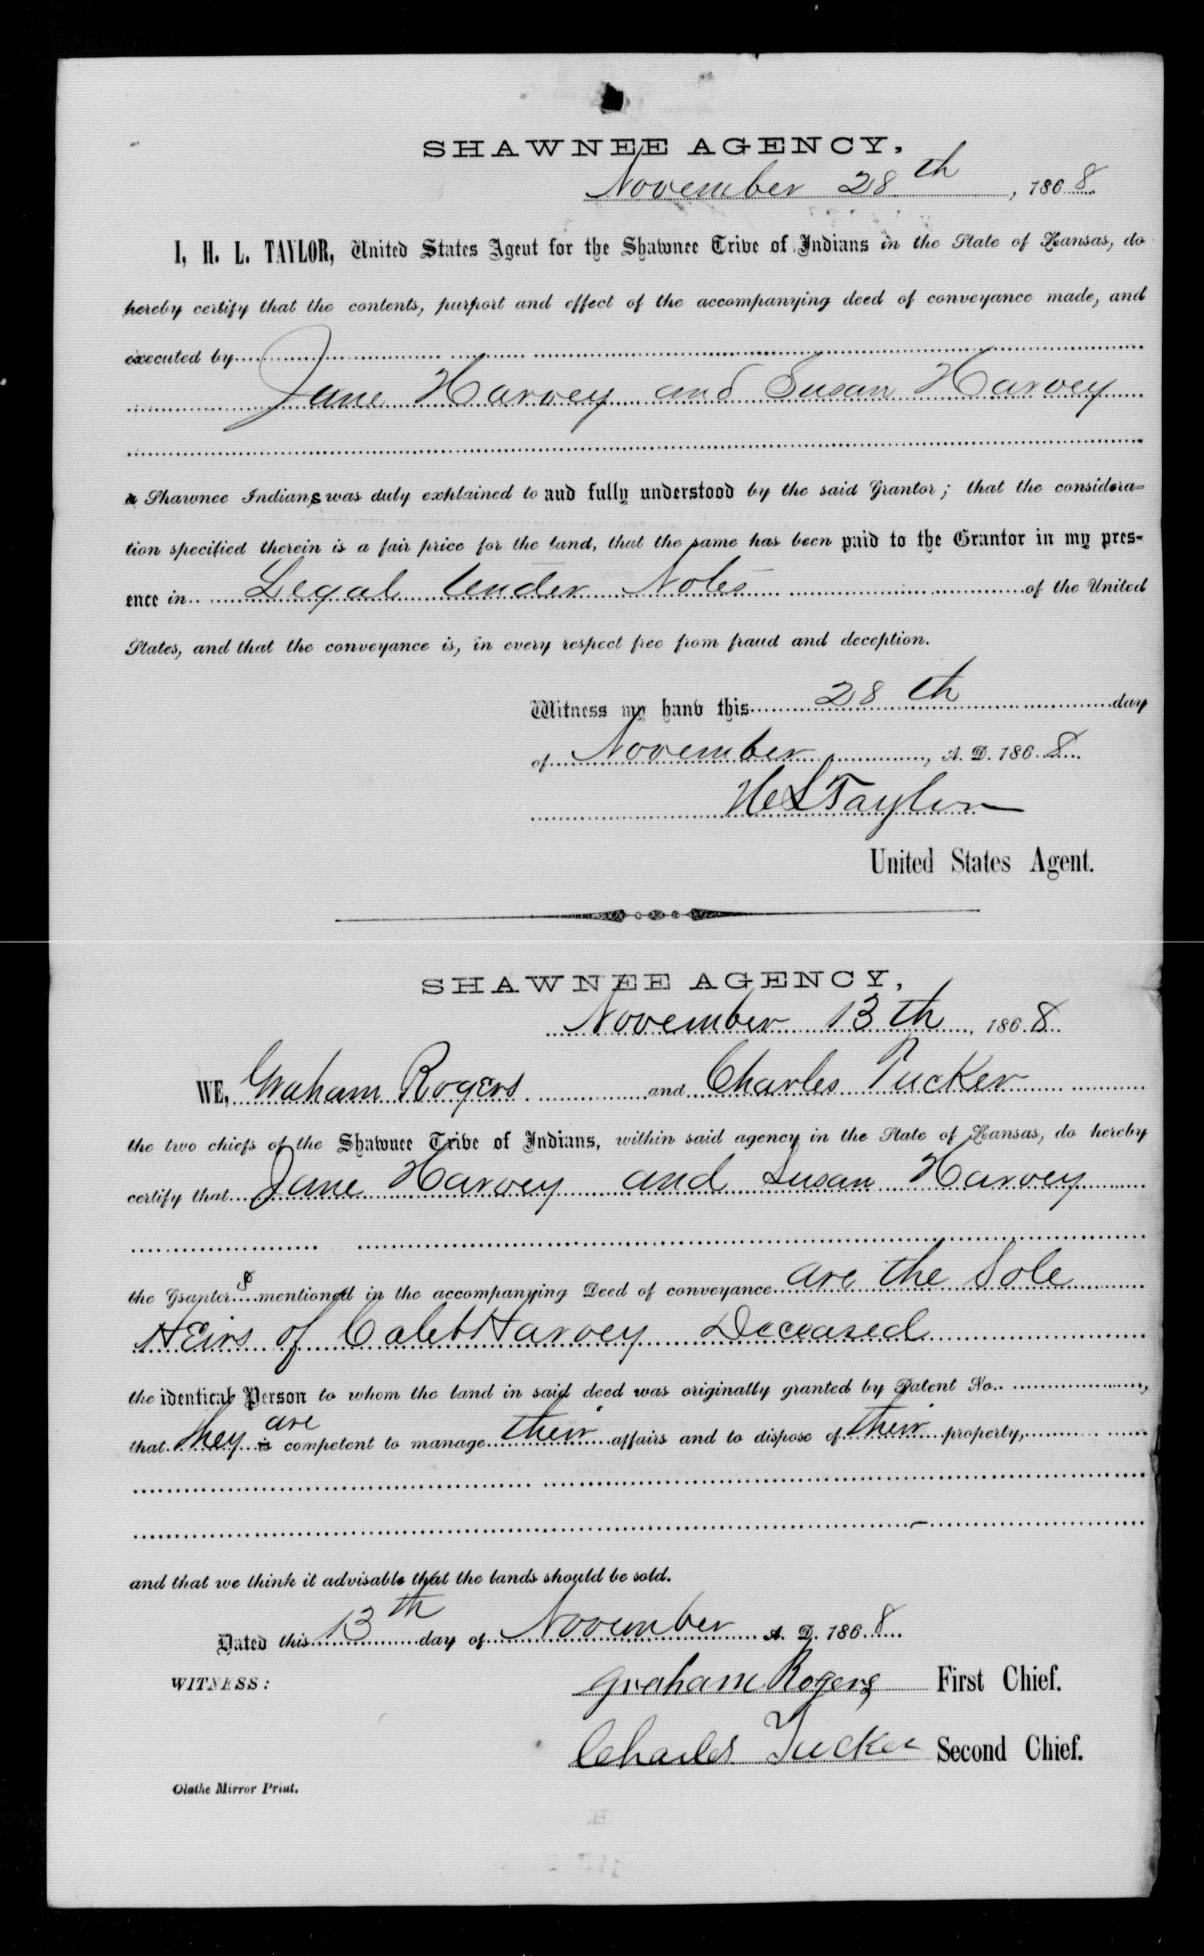 SHAWNEE AGENCY,
November 28th, 1868.
I, H. L. TAYLOR, United States Agent for the Shawnee Tribe of Indians in the State of Kansas, do
hereby certify that the contents, purport and effect of the accompanying deed of conveyance made, and
executed by
Jane Harvey and Susan Harvey
a Shawnee Indians was duly explained to and fully understood by the said Grantor; that the considera-
tion specified therein is a fair price for the land, that the same has been paid to the Grantor in my pres-
ence in Legal tender Notes of the United
States, and that the conveyance is, in every respect free from fraud and deception.
Witness my hand this 28th day
of November, A. D. 1868.
H L Taylor
United States Agent.
SHAWNEE AGENCY,
November 13th, 1868.
WE, Graham Rogers and Charles Tucker
the two chiefs of the Shawnee Tribe of Indians, within said agency in the State of Kansas, do hereby
certify that Jane Harvey and Susan Harvey
the Grantor s mentioned in the accompanying Deed of conveyance are the Sole
HEirs of Caleb Harvey Deceased
the identical Person to whom the land in said deed was originally granted by Patent No.,
that they is are competent to manage their affairs and to dispose of their property,
and that we think it advisable that the lands should be sold.
Dated this 13th day of November A. D. 1868.
WITNESS:
Graham Rogers First Chief.
Charles Tucker Second Chief.
Olathe Mirror Print.